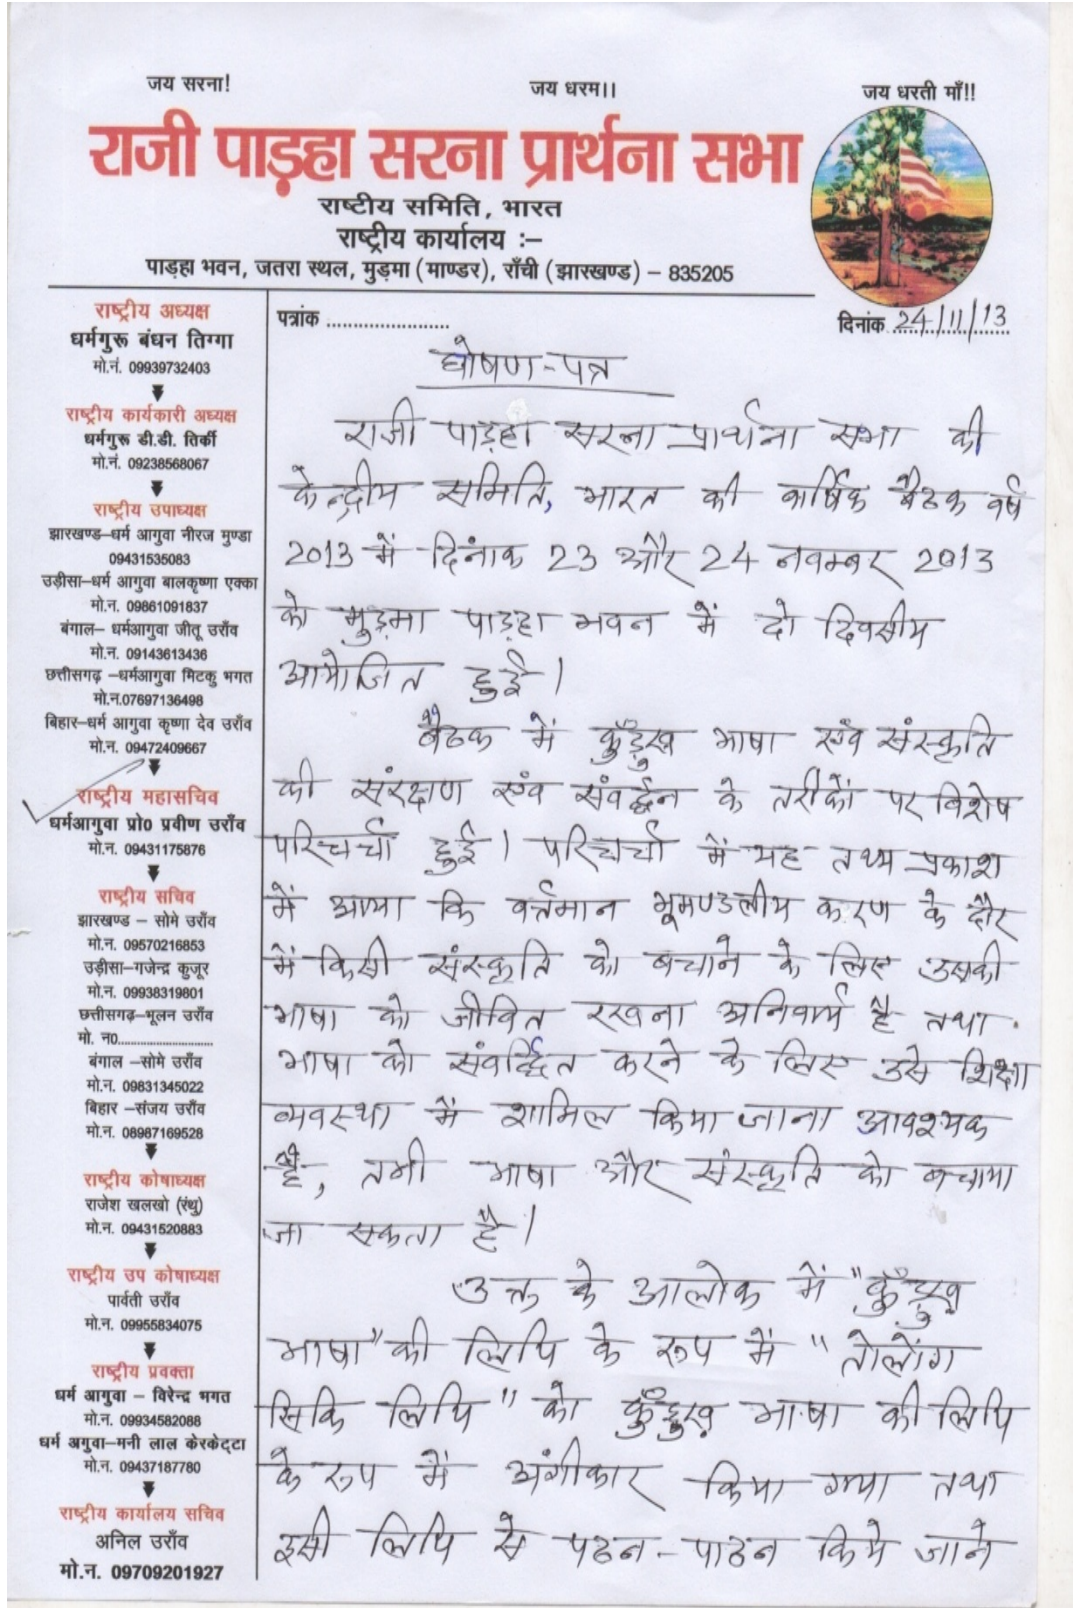 जय सरना!
जय धरम।।
जय धरती माँ!!
राजी पाड़हा सरना प्रार्थना सभा
राष्टीय समिति, भारत
राष्ट्रीय कार्यालय :–
पाड़हा भवन, जतरा स्थल, मुड़मा (माण्डर), राँची (झारखण्ड) – 835205
राष्ट्रीय अध्यक्ष
धर्मगुरू बंधन तिग्गा
मो.नं. 09939732403
राष्ट्रीय कार्यकारी अध्यक्ष
धर्मगुरू डी.डी. तिर्की
मो.नं. 09238568067
राष्ट्रीय उपाध्यक्ष
झारखण्ड–धर्म आगुवा नीरज मुण्डा
09431535083
उड़ीसा–धर्म आगुवा बालकृष्णा एक्का
मो.न. 09861091837
बंगाल– धर्मआगुवा जीतू उराँव
मो.न. 09143613436
छत्तीसगढ़ –धर्मआगुवा मिटकु भगत
मो.न.07697136498
बिहार–धर्म आगुवा कृष्णा देव उराँव
मो.न. 09472409667
राष्ट्रीय महासचिव
धर्मआगुवा प्रो0 प्रवीण उराँव
मो.न. 09431175876
राष्ट्रीय सचिव
झारखण्ड – सोमे उराँव
मो.न. 09570216853
उड़ीसा–गजेन्द्र कुजूर
मो.न. 09938319801
छत्तीसगढ़–भूलन उराँव
मो. न0..............................
बंगाल –सोमे उराँव
मो.न. 09831345022
बिहार –संजय उराँव
मो.न. 08987169528
राष्ट्रीय कोषाध्यक्ष
राजेश खलखो (रंथु)
मो.न. 09431520883
राष्ट्रीय उप कोषाध्यक्ष
पार्वती उराँव
मो.न. 09955834075
राष्ट्रीय प्रवक्ता
धर्म आगुवा – विरेन्द्र भगत
मो.न. 09934582088
धर्म अगुवा–मनी लाल केरकेट्टा
मो.न. 09437187780
राष्ट्रीय कार्यालय सचिव
अनिल उराँव
मो.न. 09709201927
पत्रांक ........................
दिनांक 24/11/13
घोषण-पत्र
राजी पाड़हा सरना प्रार्थना सभा की
केन्द्रीय समिति, भारत की वार्षिक बैठक वर्ष
2013 में दिनांक 23 और 24 नवम्बर 2013
को मुड़मा पाड़हा भवन में दो दिवसीय
आयोजित हुई।
बैठक में कुँड़ुख भाषा एवं संस्कृति
की संरक्षण एवं संवर्द्धन के तरीकों पर विशेष
परिचर्चा हुई। परिचर्चा में यह तथ्य प्रकाश
में आया कि वर्त्तमान भूमण्डलीय करण के दौर
में किसी संस्कृति को बचाने के लिए उसकी
भाषा को जीवित रखना अनिवार्य है तथा
भाषा को संवर्द्धित करने के लिए उसे शिक्षा
व्यवस्था में शामिल किया जाना आवश्यक
है, तभी भाषा और संस्कृति को बचाया
जा सकता है।
उक्त के आलोक में "कुँड़ुख
भाषा" की लिपि के रूप में "तोलोंग
सिकि लिपि" को कुँड़ुख भाषा की लिपि
के रूप में अंगीकार किया गया तथा
इसी लिपि से पठन-पाठन किये जाने